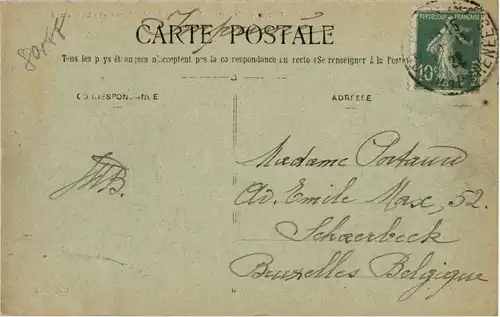 CARTE POSTALE
Tous les pays étrangers n'acceptent pas la correspondance au recto (Se renseigner à la Poste)
CORRESPONDANCE
ADRESSE
REPUBLIQUE FRANÇAISE
10
Madame
Av. Emile Max, 52.
Schaerbeck
Bruxelles Belgique